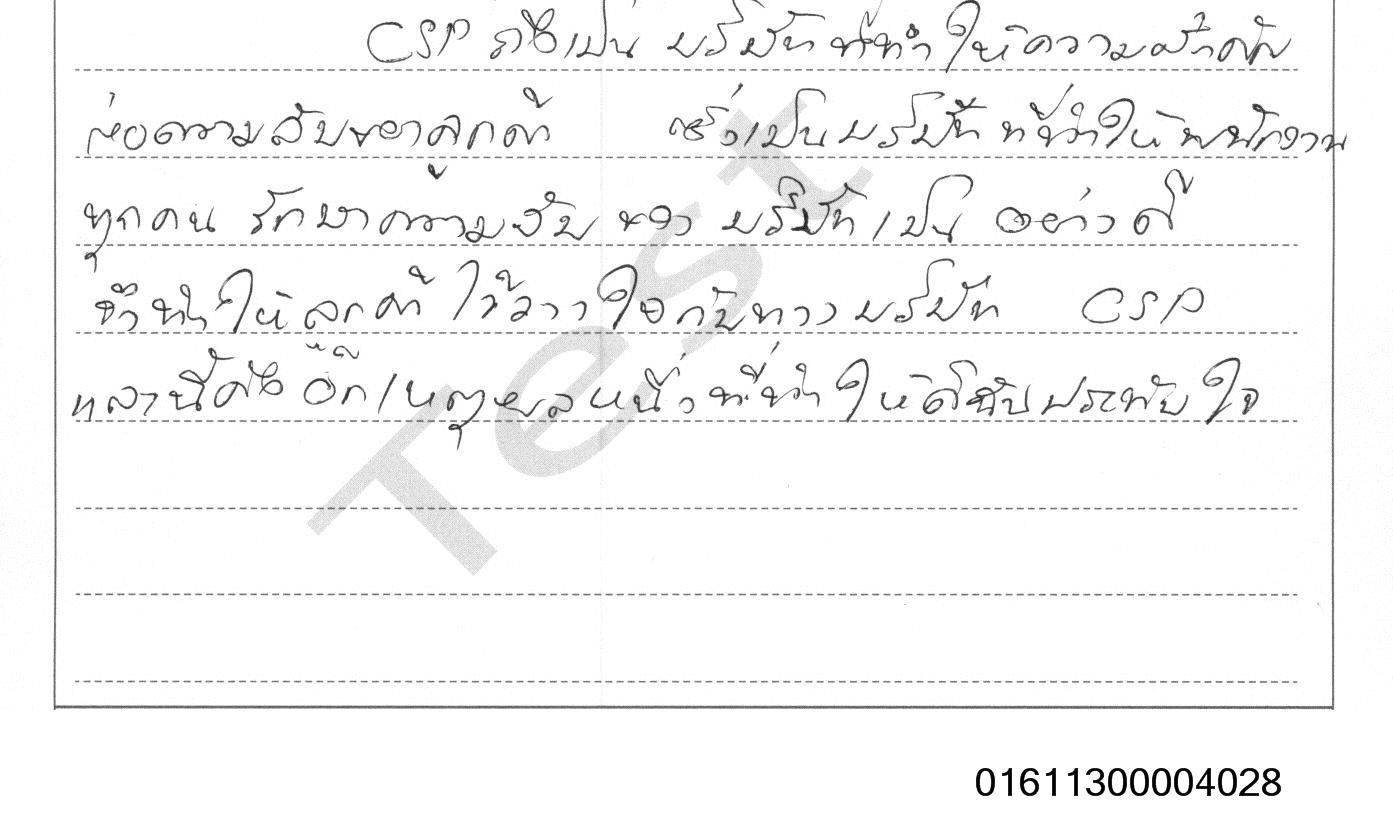 CSP ถือเป็น บริษัท ที่ทำให้ความสำคัญ
ต่อความลับของลูกค้า ซึ่งเป็นบริษัท ที่ทำให้พนักงาน
ทุกคน รักษาความลับ ของ บริษัท เป็น อย่างดี
จึงทำให้ลูกค้า ไว้วางใจกับทางบริษัท CSP
เหล่านี้คือ อีกเหตุผลหนึ่งที่ทำให้ดิฉันประทับใจ
Test
01611300004028